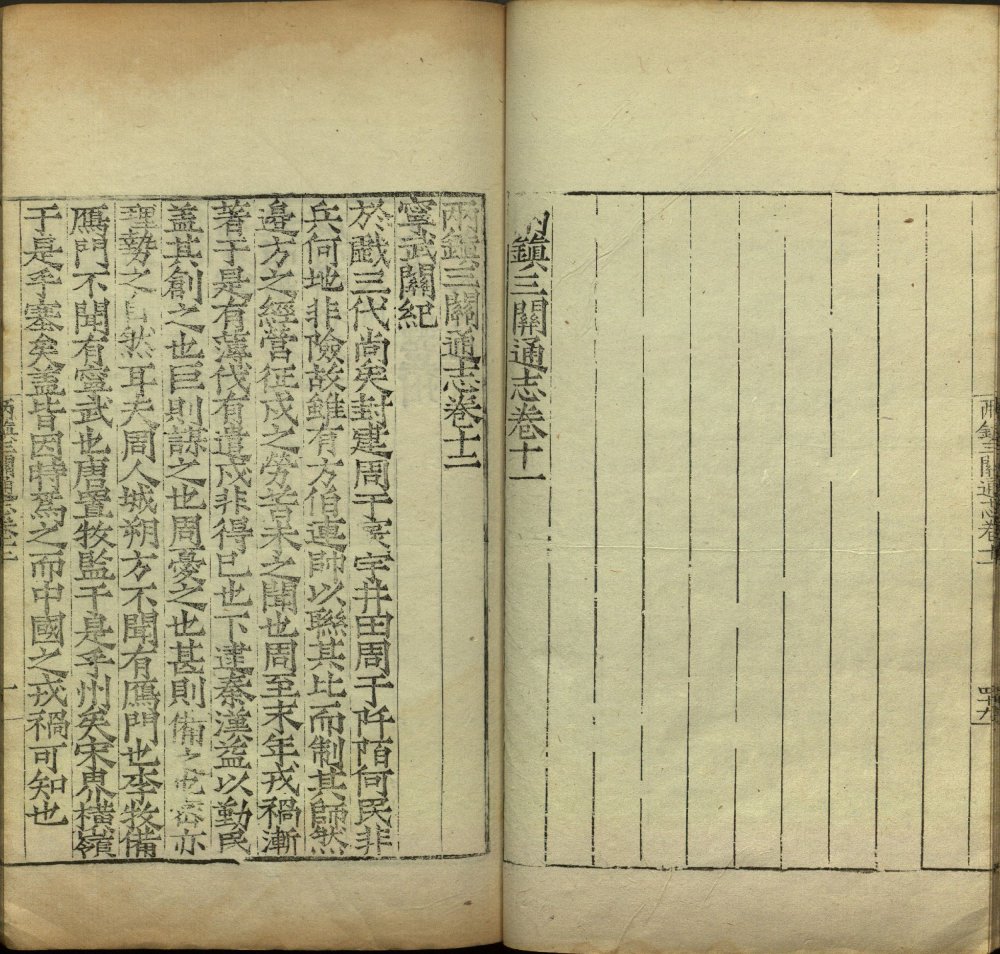 兩鎮三關通志卷十一
四十九
鎮三關通志卷十一
兩鎮三關通志卷十二
寧武關紀
於戲三代尚矣封建周于寰宇井田周于阡陌何民非
兵何地非險故雖有方伯連帥以聯其比而制其師然
邊方之經營征戍之勞苦未之聞也周至末年戎禍漸
著于是有薄伐有遣戍非得已也下逮秦漢益以勤民
蓋其創之也巨則謀之也周憂之也甚則備之也密亦
理勢之自然耳夫周人城朔方不聞有鴈門也李牧備
鴈門不聞有寧武也唐置牧監于是乎州矣宋界橫嶺
于是乎塞矣蓋皆因時為之而中國之戎禍可知也
兩鎮三關通志卷十二
一